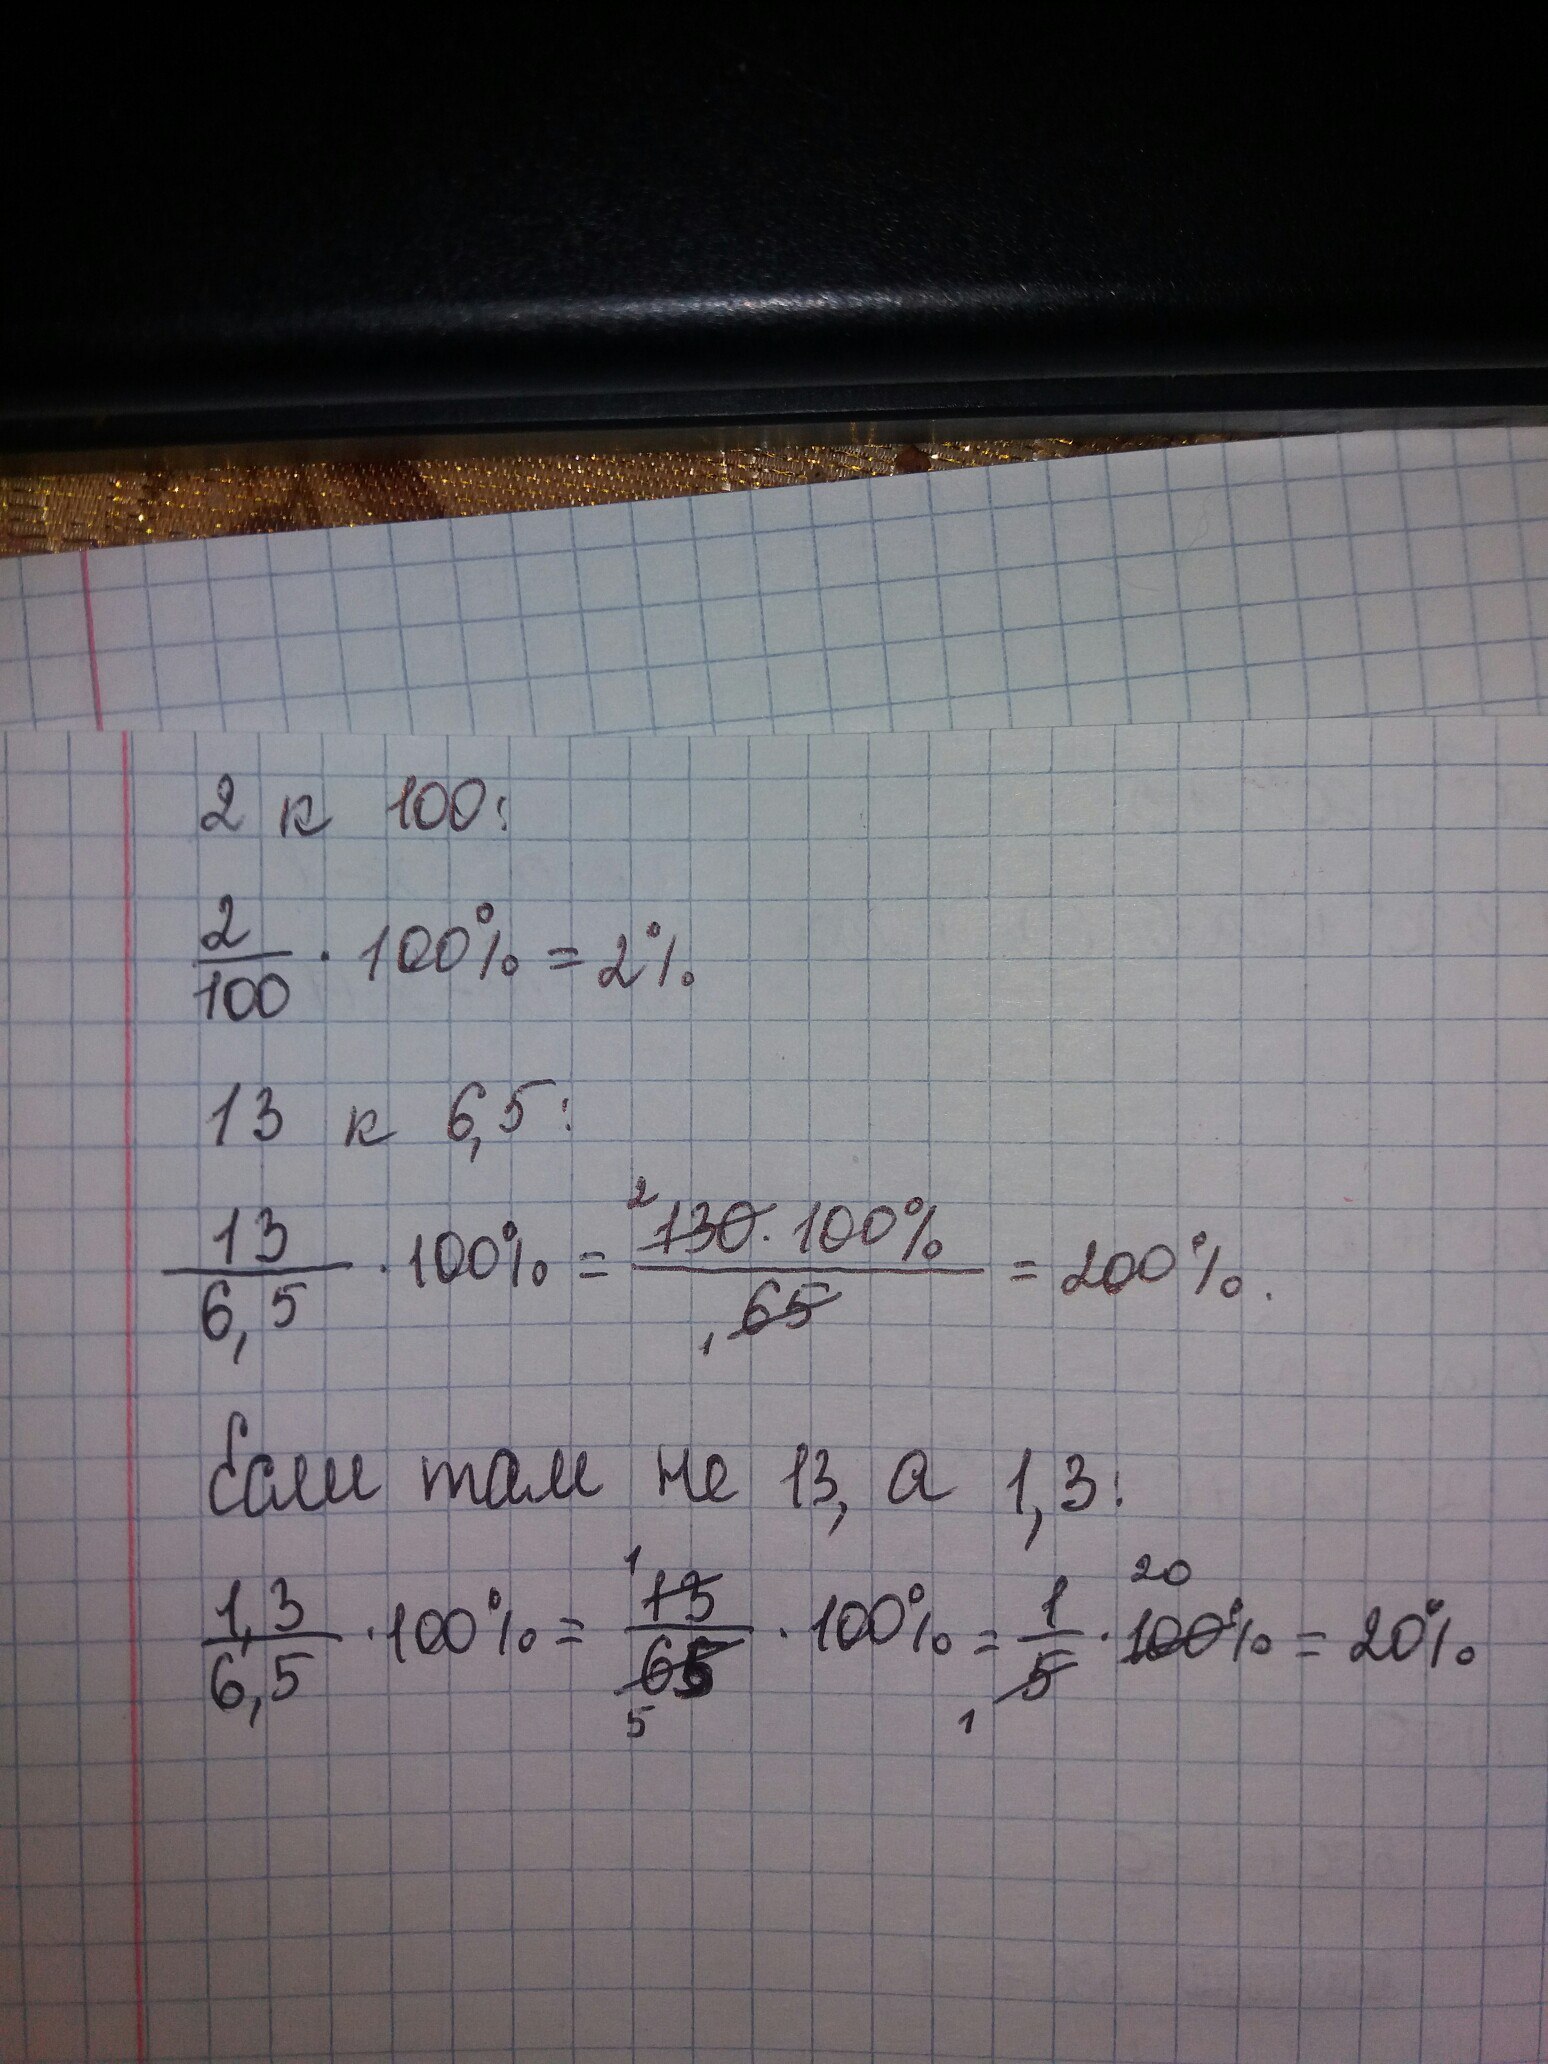 2 к 100:
2/100 · 100% = 2%
13 к 6,5:
13/6,5 · 100% = 2 130 · 100% / 1 65 = 200%.
Если там не 13, а 1,3:
1,3/6,5 · 100% = 1 13/65 5 · 100% = 1/5 1 · 20 100% = 20%